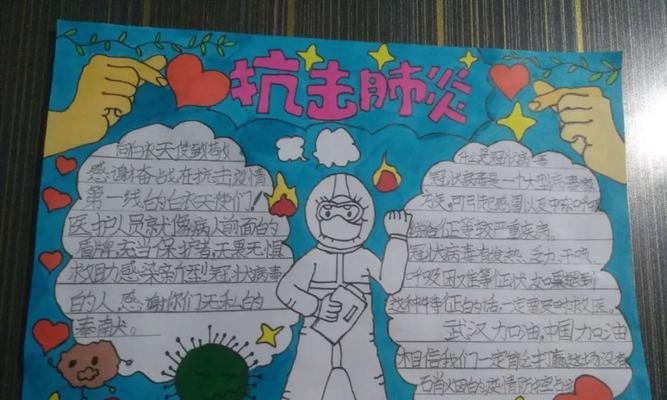 抗击肺炎
向白衣天使致敬
感谢奋战在抗击疫情
第一线的白衣天使们
医护人员就像病人前面的
盾牌,充当保护者,无畏无惧
救助感染新型冠状病毒
的人,感谢你们无私的
奉献。
什么是冠状病毒
冠状病毒是一个大型病毒
可引起感冒以及中东呼吸
综合征等较严重疾病。
冠状病毒有发热、乏力、干咳、
呼吸困难等症状,如果遇到
这种特征的话,一定要及时找医
武汉加油,中国加油
相信我们一定能打赢这场没有
硝烟的疫情防控